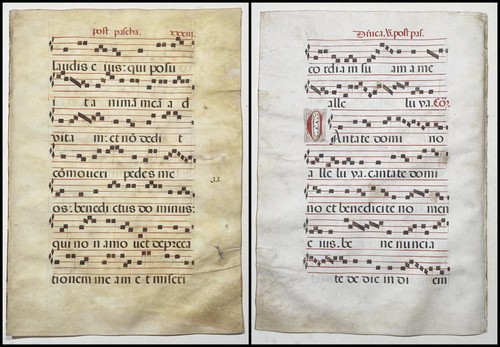 post pascha. xxxiii.
laudis e ius: qui posu
i ta nimā meā a d
vita m: et nō dedi t
cōmoveri pedes me
33.
os: benedi ctus do minus:
qui no n amo uet depreca
tionem me am e t miseri
Dñica. V. post pas.
co rdia m su am a me
alle lu ya. Cō.
Antate domi no
a lle lu ya. cantate domi
no et benedicite no men
e ius. be ne nuncia
te de die in di em